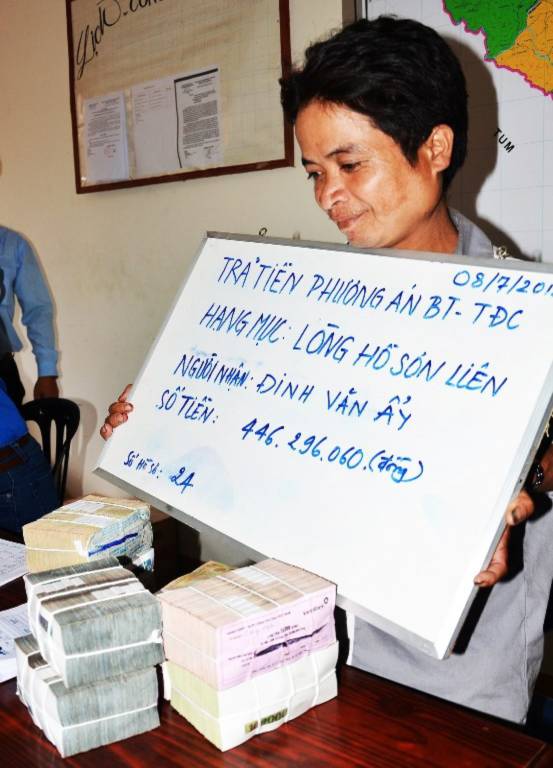 LỊCH CÔNG
TUM
08/7/201
TRẢ TIỀN PHƯƠNG ÁN BT-TĐC
HẠNG MỤC: LÒNG HỒ SƠN LIÊN
NGƯỜI NHẬN: ĐINH VĂN ẨY
SỐ TIỀN: 446.296.060.(đồng)
SỐ HỒ SƠ: 24